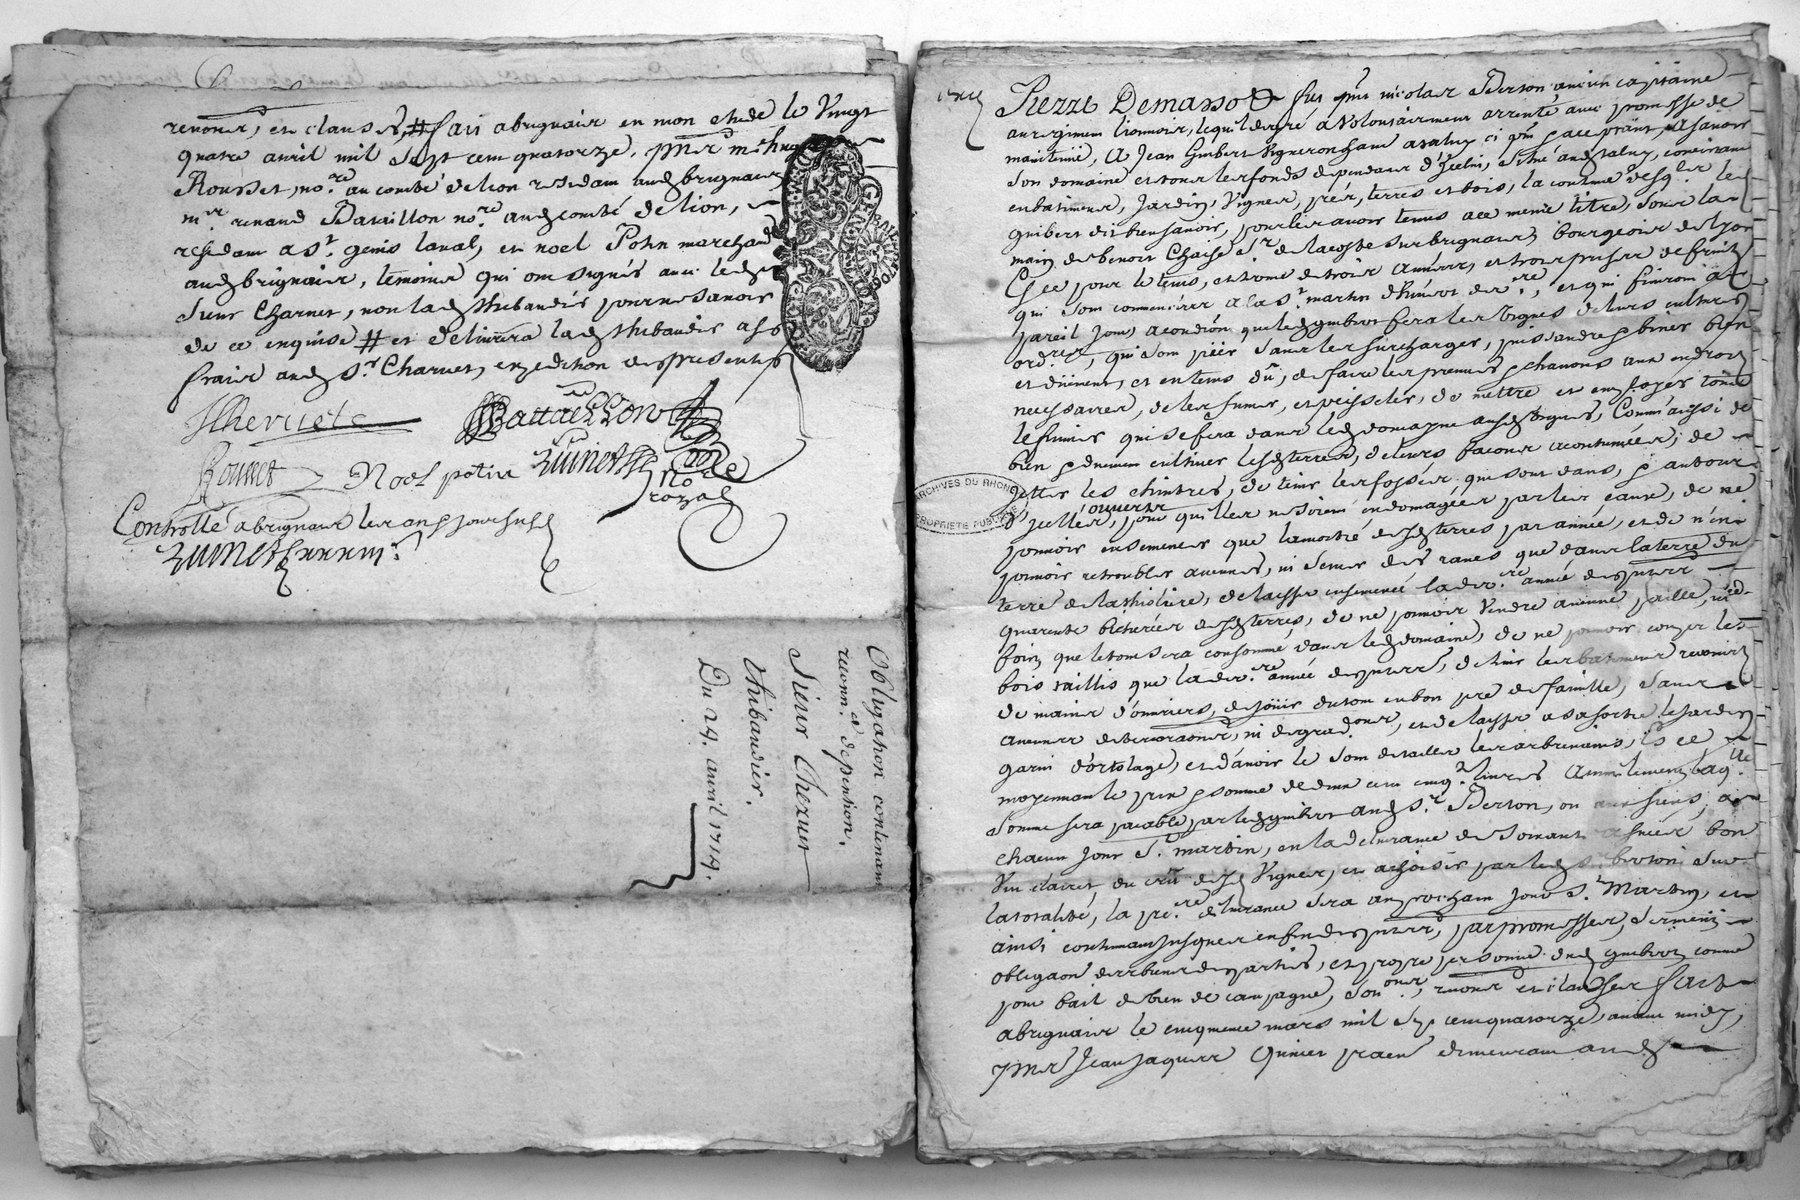 renoncé, et clauses, # fait a brignais en mon etude le Vingt
quatre avril mil sept cent quatorze, p^nt m^e
Rousset, no.^re au comté de lion residant aud brignais
m^e renaud Bataillon no.^re aud comté de lion,
residant a S^t genis laval, et noel Potin marchand
aud brignais, temoins qui ont signés avec led
Sieur Charvet, non lad thibaudier pour ne savoir
de ce enquise # et delivrera lad thibaudier a ses
fraix aud S^r Charvet, expedition des presentes
Bataillon
Rousset Noel potin no^re
royal
Controllé a brignais les an et jour susd
Obligation contenant
reconn.^ce de pention.
Sieur Cheruet
Thibaudier.
Du 24. avril 1714.
Pierre Demasso fut p^nt nicolas Berton ancien capitaine
au regiment lionnois, lequel de gré a Volontairement arrenté avec promesse de
maintenir, A Jean Guibert Vigneron a taluy ci p^nt acceptant, a savoir
son domaine et tous les fonds dependans d'Icelui, situé aud taluy, consistant
en batimens, Jardin, Vignes, prés, terres et bois, la contenue desq.^ls led
guibert dit bien savoir, pour les avoir tenus a ce meme titre, sous la
main de benoit Chaize S^r de lacoste sur brignais, bourgeois de lyon
Et ce pour le tems, et terme de trois années, et trois prises de fruits
qui sont commencées a la S^t martin d'hiver der^re, et qui finiront a
pareil jour, a condition que led guibert fera les Vignes de leurs cultures
ord.^res, qui sont pôer sans les surcharger, puis andre biner bien
et düement, et en tems dû, de faire les premiers chavons aux endroits
necessaires, de les fumer, et peisseler, de mettre et employer tout
le fumier qui se fera dans led domaine ausd Vignes, Comm'aussi de
bien et duement cultiver lesd terres, de leurs facons acoutumées, de
jetter les chintres, de tenir les fossés qui sont dans, et autour
ouverts
d'Icelles, pour qu'elles ne soient endomagées par les eaux, de ne
pouvoir ensemencer que la moitié desd terres par année, et de n'en
pouvoir retroubler aucunes, ni semer des raves que dans la terre du
terre de la thiolière, de laisser ensemencé la der.^re année
quarante bicherées desd terres, de ne pouvoir Vendre aucune paille, ni
foin que le tout sera consommé dans led domaine, de ne pouvoir couper les
bois taillis que la der.^re année de tenir les batimens
de mains d'ouvriers, de jouir du tout en bon pere de famille, sans
aucunes deteriorations, ni degrad.^ons, et de laisser a sa sortie le jardin
garni d'ortolage, et d'avoir le soin de tailler les arbres nains, Et ce
moyennant le prix et somme de deux cent cinq.^te livres annuellement laq.^lle
somme sera paiable par led guibert aud S.^r Berton, ou aux siens, a
chacun jour S.^t martin, en la delivrance de Soixante asnées bon
Vin clairet, du crû desd Vignes, et a choisir par led S. berton sur
la totalité, la pre.^re delivrance sera au prochain jour S.^t Martin, et
ainsi continuant jusques en fin par promesses, serment
obligaon des biens des parties, et propre personne dud guibert comme
pour bail de bien de campagne, renonc et clauses fait
a brignais le cinquieme mars mil sept cent quatorze, avant midy,
p^nt Jean Jaques demeurant aud
ARCHIVES DU RHONE
PROPRIETE PUBLIQUE